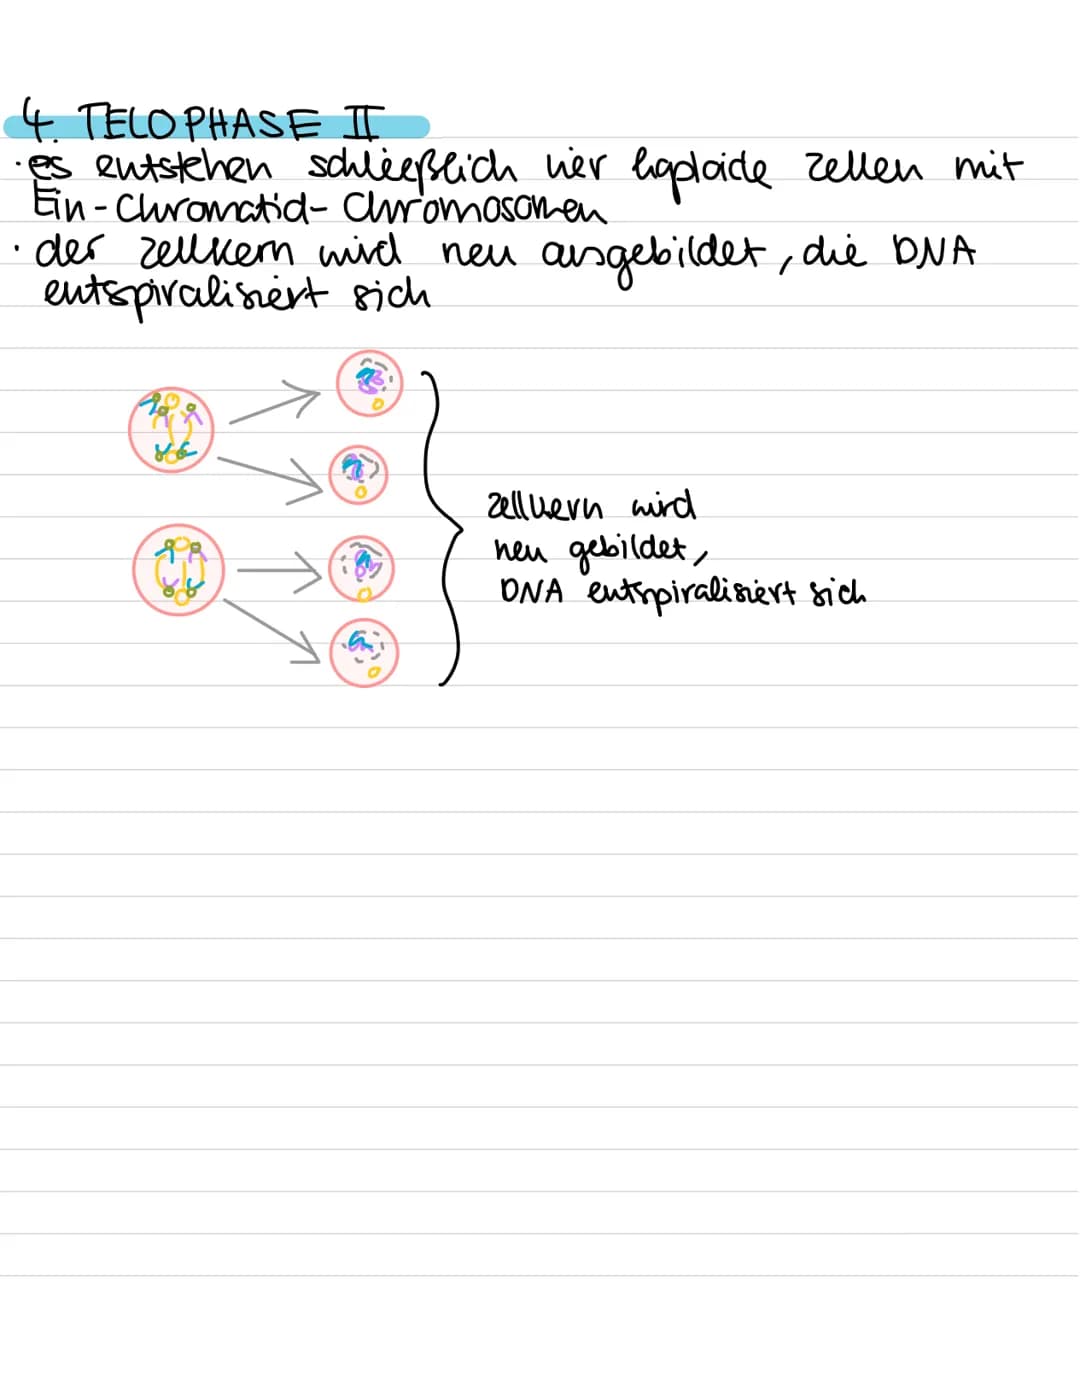 4. TELOPHASE II
· es entstehen schließlich vier haploide Zellen mit
Ein-Chromatid-Chromosomen
· der Zellkern wird neu ausgebildet, die DNA
entspiralisiert sich
Zellkern wird
neu gebildet,
DNA entspiralisiert sich